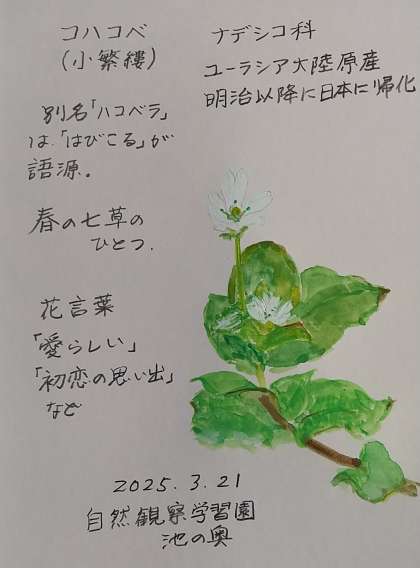 コハコベ
(小繁縷)
ナデシコ科
ユーラシア大陸原産
明治以降に日本に帰化
別名「ハコベラ」
は、「はびこる」が
語源。
春の七草の
ひとつ.
花言葉
「愛らしい」
「初恋の思い出」
など
2025.3.21
自然観察学習園
池の奥